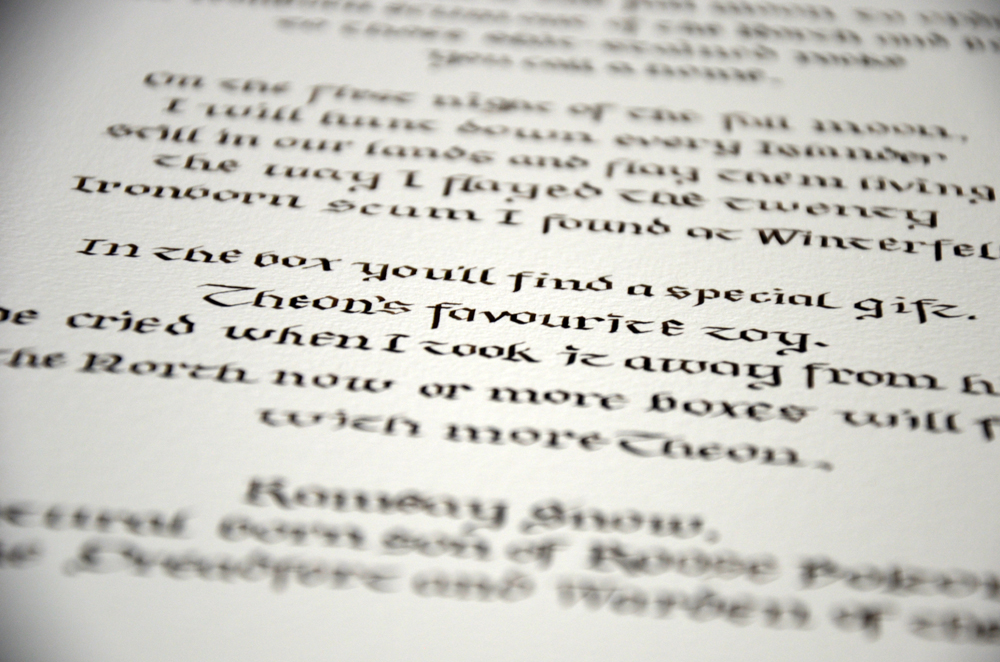 you call a home.
On the first night of the full moon,
I will hunt down every Islander
still in our lands and flay them living
the way I flayed the twenty
Ironborn scum I found at Winterfell
In the box you'll find a special gift.
Theon's favourite toy.
cried when I took it away from h
the North now or more boxes will f
with more Theon.
Ramsay Snow,
born son of Roose Bolton
Dreadfort and Warden of the